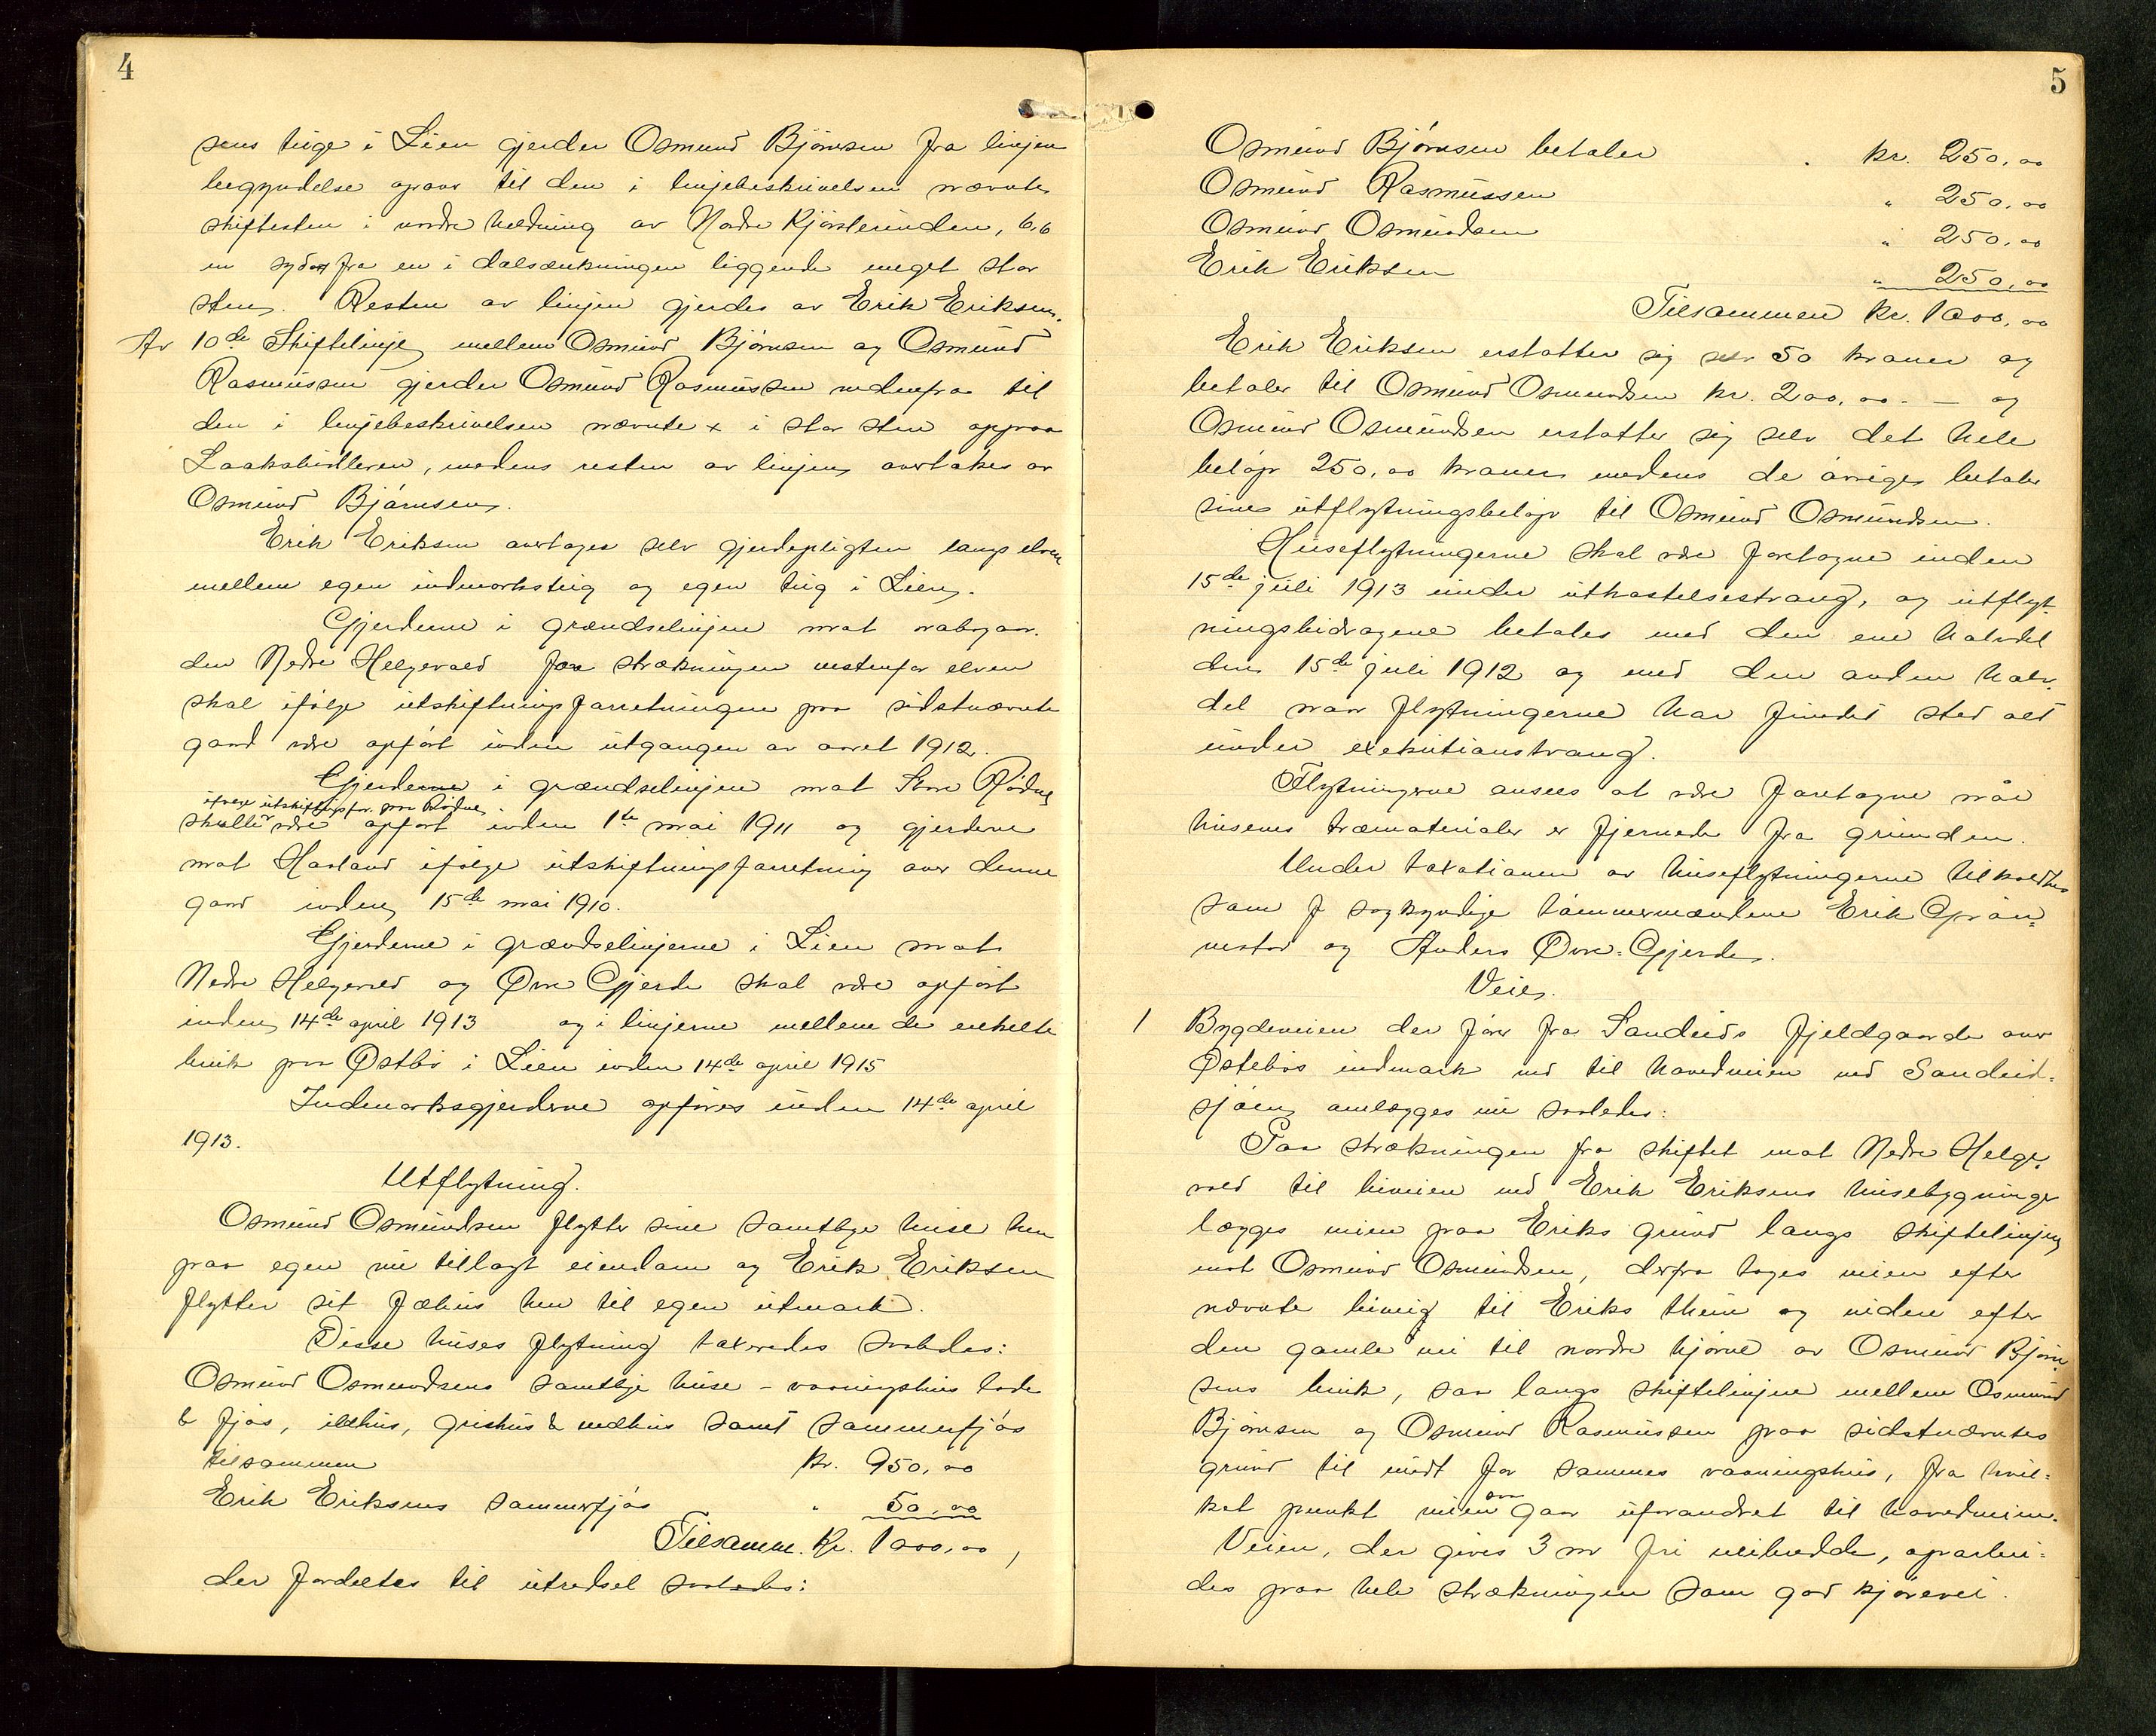 4
sens teige i Lien gjerder Osmund Björnsen fra linjens
begyndelse opaav til den i linjebeskrivelsen nævnte
skiftesten i nordre heldning av Nordre Kjörsterinden, 6,6
m syd fra en i dalsænkningen liggende meget stor
sten. Resten av linjen gjerdes av Erik Eriksen.
Av 10de Skiftelinje mellem Osmund Björnsen og Osmund
Rasmussen gjerder Osmund Rasmussen nedenfra til
den i linjebeskrivelsen nævnte x i stor sten oppaa
Laakahidleren, medens resten av linjen overtakes av
Osmund Björnsen.
Erik Eriksen overtages selv gjerdepligten langs elven
mellem egen indmarksteig og egen teig i Lien.
Gjerderne i grændselinjen mot nabogaar-
den Nedre Helgevold paa strækningen vestenfor elven
skal ifölge utskiftningsforretningen paa sidstnævnte
gaard være opfört inden utgangen av aaret 1912.
Gjerderne i grændselinjen mot Store Rödne
ifölge utskiftningsfor. paa Rödne
skulle være opfört inden 1te mai 1911 og gjerderne
mot Havland ifölge utskiftningsforretning over denne
gaard inden 15de mai 1910.
Gjerderne i grændselinjerne i Lien mot
Nedre Helgevold og Övre Gjerde skal være opfört
inden 14de april 1913 og i linjerne mellem de enkelte
bruk paa Östbö i Lien inden 14de april 1915
Indmarksgjerderne opföres inden 14de april
1913.
Utflytning.
Osmund Osmundsen flytter sine samtlige huse hen
paa egen nu tillagt eiendom og Erik Eriksen
flytter sit fæhus hen til egen utmark.
Disse huses flytning taxeredes saaledes:
Osmund Osmundsens samtlige huse - vaaningshus lade
& fjös, ildhus, grishus & vedhus samt sommerfjös
tilsammen kr. 950,00
Erik Eriksens sommerfjös " 50,00
Tilsamm. Kr. 1000,00,
der fordeltes til utredsel saaledes:
5
Osmund Björnsen betaler kr. 250,00
Osmund Rasmussen " 250,00
Osmund Osmundsen " 250,00
Erik Eriksen " 250,00
Tilsammen Kr. 1000,00
Erik Eriksen erstatter sig selv 50 kroner og
betaler til Osmund Osmundsen kr. 200,00. — og
Osmund Osmundsen erstatter sig selv det hele
belöp 250,00 kroner medens de övrige betaler
sine utflytningsbelöp til Osmund Osmundsen.
Huseflytningerne skal være foretagne inden
15de juli 1913 under utkastelsestvang, og utflyt-
ningsbidragene betales med den ene halvdel
den 15de juli 1912 og med den anden halv-
del naar flytningerne har fundet sted alt
under exekutionstvang.
Flytningerne ansees at være foretagne når
husenes træmaterialer er fjernede fra grunden.
Under taxationen av huseflytningerne tilkaldtes
som sagkyndige tömmermændene Erik Grön-
nestad og Anders Övre-Gjerde.
Veie.
1 Bygdeveien der förer fra Sandeids fjeldgaarde over
Östebös indmark ned til hovedveien ved Sandeid-
sjöen omlægges nu saaledes:
Paa strækningen fra skiftet mot Nedre Helge-
vold til biveien ved Erik Eriksens husebygninger
lægges veien paa Eriks grund langs skiftelinjen
mot Osmund Osmundsen, derfra tages veien efter
nævnte biveig til Eriks thun og viden efter
den gamle vei til nordre hjörne av Osmund Björn-
sens bruk, saa langs skiftelinjene mellem Osmund
Björnsen og Osmund Rasmussen paa sidstnævntes
grund til midt for sammes vaaningshus, fra hvil-
ket punkt veien gaar uforandret til hovedveien.
Veien, der gives 3 m fri veibredde, oparbei-
des paa hele strækningen som god kjörevei.